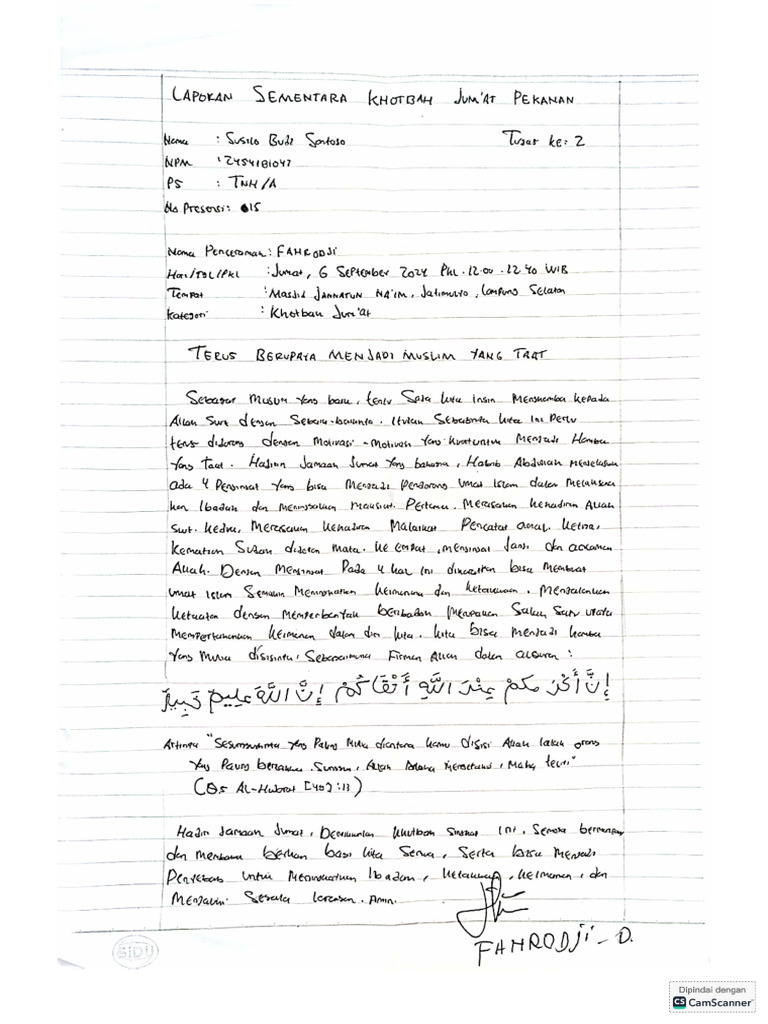 LAPORAN SEMENTARA KHOTBAH JUM'AT PEKANAN
Nama : Susilo Budi Santoso Tugas ke: 2
NPM : 2454181047
PS : TNH/A
No Presensi: 15
Nama Penceramah: FAHRODJI
Hari/TGL/PKL : Jumat, 6 September 2024 PKL. 12.00 - 12.40 WIB
Tempat : Masjid JANNATUN NA'IM, Jatimulyo, Lampung Selatan
Kategori : Khotbah Jum'at
TERUS BERUPAYA MENJADI MUSLIM YANG TAAT
Sebagai Muslim yang baik, tentu Saja kita ingin Menghamba kepada
Allah Swt dengan Sebaik-baiknya. Itulah Sebabnya kita ini Perlu
terus didorong dengan Motivasi-Motivasi yang Menjadi Hamba
yang Taat. Hadirin Jamaah Jumat yang bahagia, Habib Abdullah Menjelaskan
ada 4 Pengingat yang bisa Menjadi Pendorong umat Islam dalam Melaksana
kan Ibadah dan Meninggalkan Maksiat. Pertama, Merasakan kehadiran Allah
Swt. Kedua, Merasakan kehadiran Malaikat Pencatat amal. Ketiga,
Kematian Sudah didepan Mata. Ke empat, mengingat Janji dan ancaman
Allah. Dengan Mengingat Pada 4 hal ini diharapkan bisa Membuat
umat Islam Semakin Meningkatkan keimanan dan ketakwaan. Menjalankan
ketaatan dengan Memperbanyak beribadah Merupakan Salah Satu upaya
Mempertahankan keimanan dalam diri kita. Kita bisa Menjadi hamba
yang Mulia disisinya, Sebagaimana Firman Allah dalam alquran :
إِنَّ أَكْرَمَكُمْ عِنْدَ اللَّهِ أَتْقَاكُمْ إِنَّ اللَّهَ عَلِيمٌ خَبِيرٌ
Artinya "Sesungguhnya yang Paling Mulia diantara kamu disisi Allah ialah orang
yang Paling bertakwa. Sungguh, Allah Maha Mengetahui, Maha teliti"
(QS AL-Hujurat [49]:13)
Hadirin Jamaah Jumat, Demikianlah khutbah Singkat ini, Semoga bermanfaat
dan membawa berkah bagi kita Semua, Serta bisa Menjadi
Penyebab untuk Meningkatkan Ibadah, ketakwaan, keimanan, dan
Menjauhi Segala larangan. Amin.
FAHRODJI - D.
SIDU
Dipindai dengan
CS CamScanner